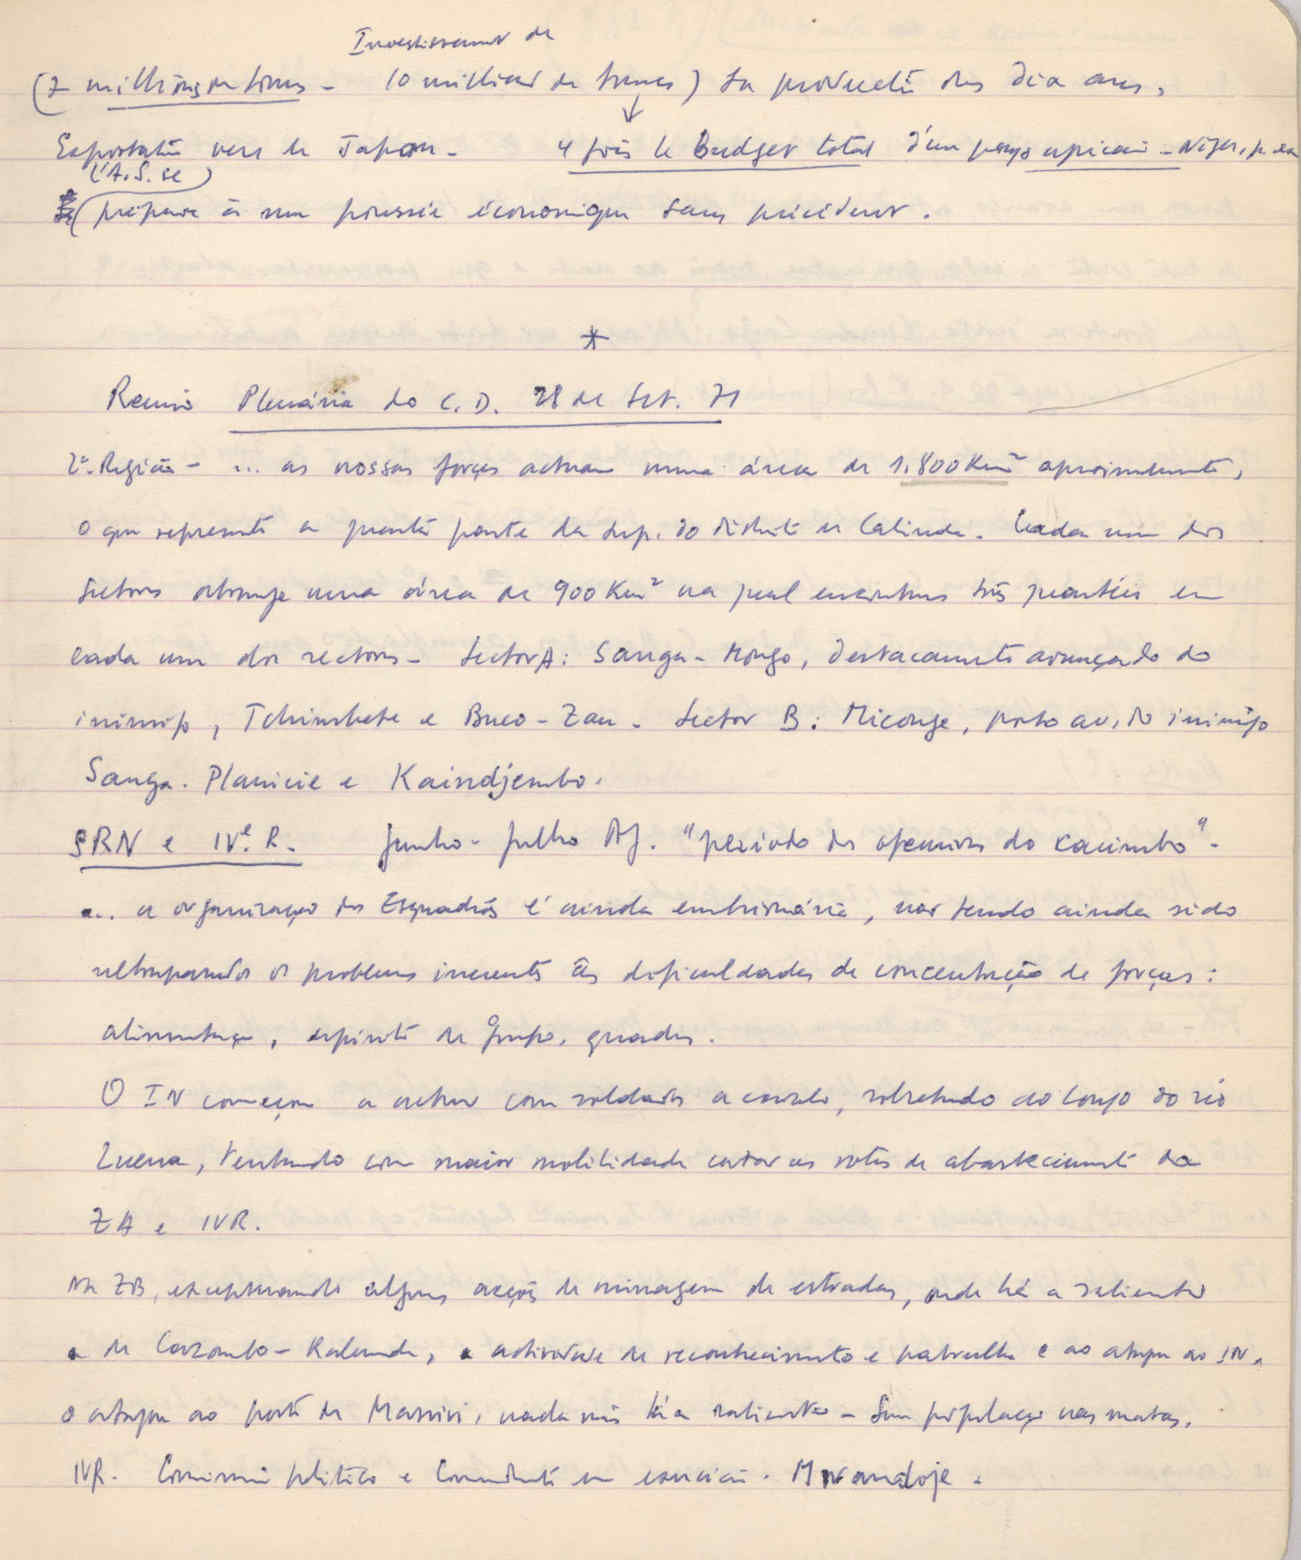 Investissement de
(7 millions de tonnes - 10 milliard de francs) La production des dix ans,
Exportation vers le Japon - 4 fois le Budget total d'un pays africain - Niger, p. ex
(l'A.S. se)
prépare à une poussée économique sans précédent.
*
Reunião Plenária do C.D. 28 de Set. 71
2ª Região - ... as nossas forças actuam numa área de 1.800 Km² aproximadamente,
o que representa a quarta parte da sup. do distrito de Cabinda. Cada um dos
Sectores abrange uma área de 900 Km² na qual encontramos três quartéis em
cada um dos sectores - Sector A: Sanga-Mongo, destacamento avançado do
inimigo, Tchimbete e Buco-Zau - Sector B: Miconge, posto av. do inimigo
Sanga-Planície e Kaindjembo.
SRN e IVª R. Junho-Julho Ag. "período das ofensivas do cacimbo" -
... a organização dos Esquadrões é ainda embrionária, não tendo ainda sido
ultrapassados os problemas inerentes às dificuldades de concentração de forças:
alimentação, espírito de grupo, quadros.
O IN começou a actuar com soldados a cavalo, sobretudo ao longo do rio
Luena, tentando com maior mobilidade cortar as rotas de abastecimento da
ZA e IVR.
Na ZB, exceptuando algumas acções de minagem de estradas, onde há a salientar
a de Cazombo-Kalunda, a actividade de reconhecimento e patrulha e ao ataque ao IN,
o ataque ao posto de Massivi, nada mais há a salientar - Sem população nas matas.
IVR. Comissário político e Comandante em exercício.